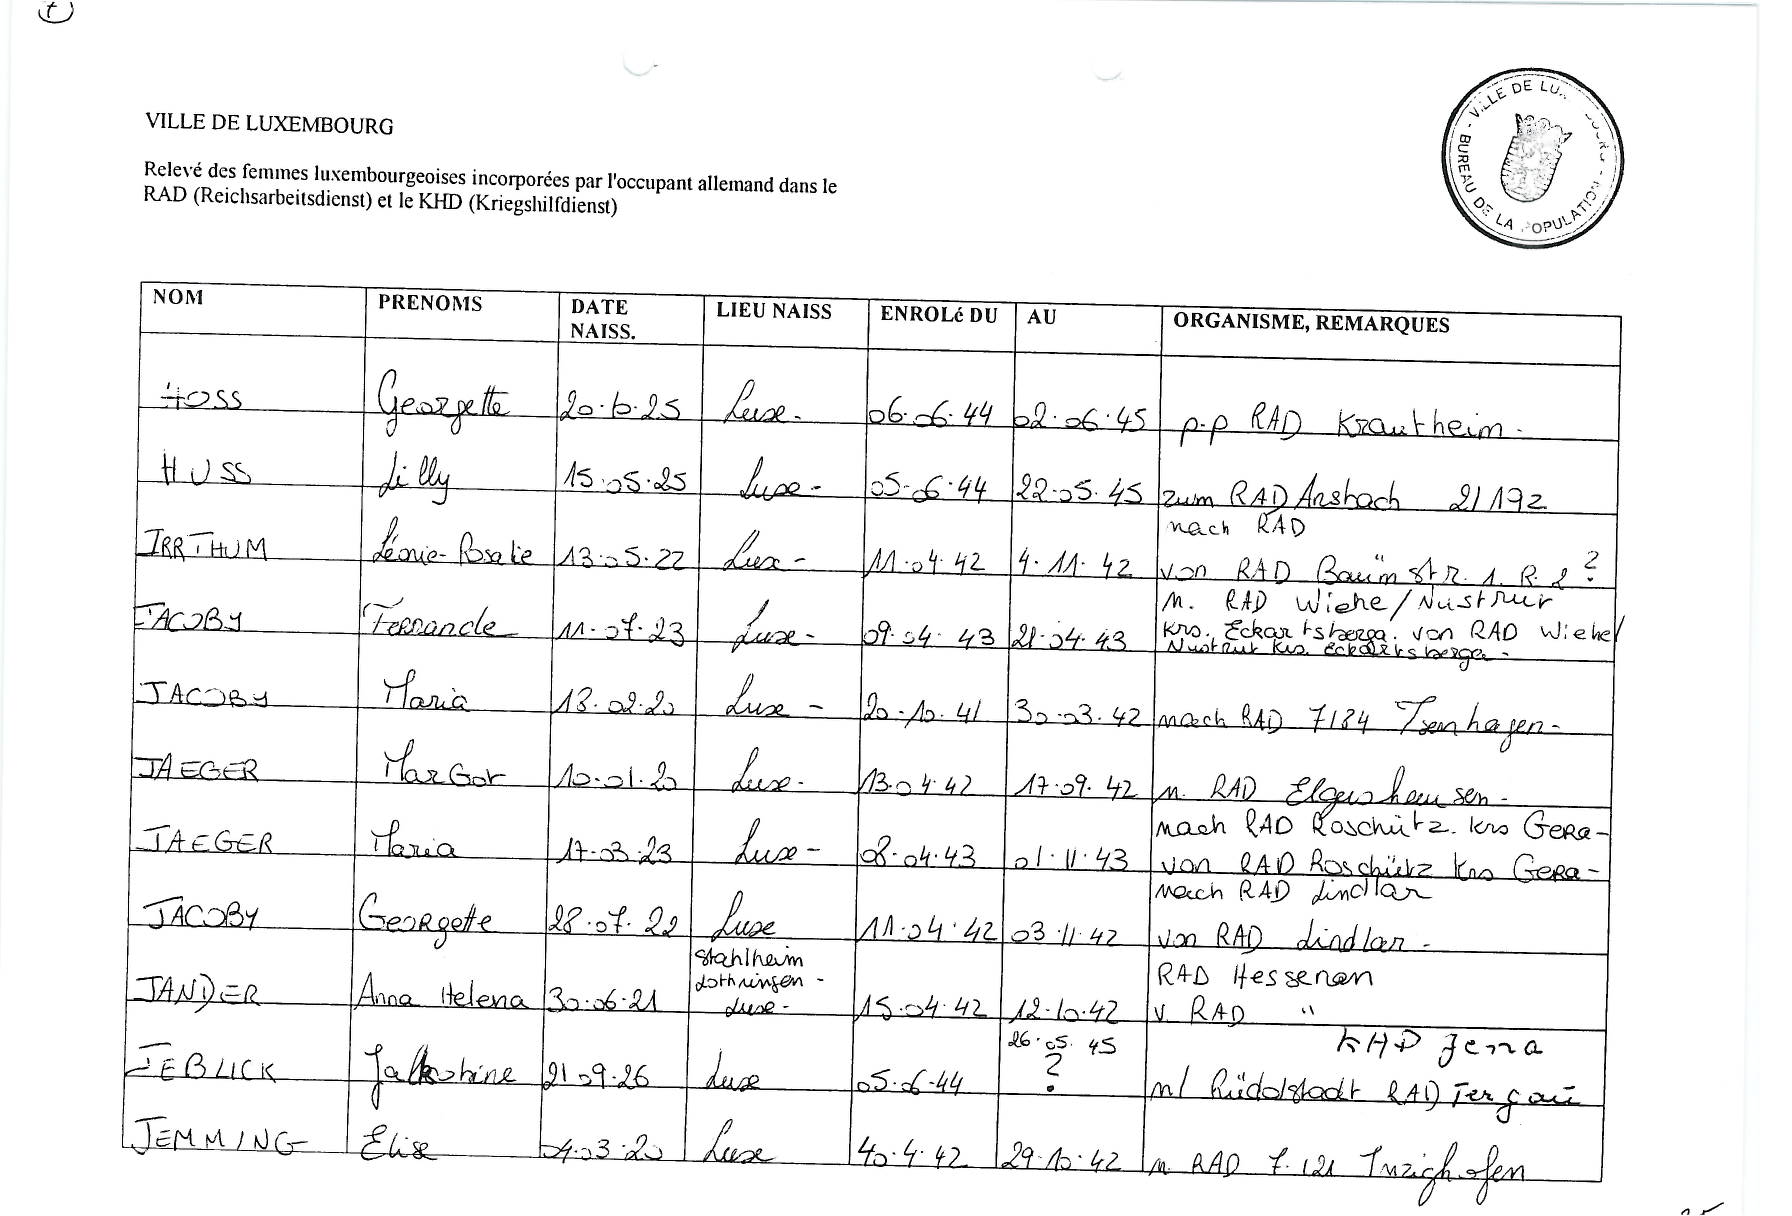 VILLE DE LUXEMBOURG
Relevé des femmes luxembourgeoises incorporées par l'occupant allemand dans le
RAD (Reichsarbeitsdienst) et le KHD (Kriegshilfdienst)
VILLE DE LU OURG - BUREAU DE LA POPULATION -
NOM PRENOMS DATE NAISS. LIEU NAISS ENROLé DU AU ORGANISME, REMARQUES
HOSS Georgette 20.10.25 Luxe- 06.06.44 02.06.45 p.p RAD Krautheim-
HUSS Lilly 15.05.25 Luxe- 05.06.44 22.05.45 zum RAD Ansbach 2/192
nach RAD
IRRTHUM Léonie-Rosalie 13.05.22 Lux- 11.04.42 4.11.42 von RAD
n. RAD Wiehe/Nustrur
JACOBY Fernande 11.07.23 Luxe- 09.04.43 21.04.43 Krs. Eckartsberga. von RAD Wiehe/
Nustrut Krs. Eckartsberga-
JACOBY Maria 13.02.20 Luxe- 20.10.41 30.03.42 nach RAD 7/84 Isenhagen-
JAEGER Margot 10.01.20 Luxe- 13.04.42 17.09.42 n. RAD Elgershausen-
nach RAD Roschütz. Krs GERA-
JAEGER Maria 17.03.23 Luxe- 08.04.43 01.11.43 von RAD Roschütz Krs GERA-
nach RAD Lindlar
JACOBY Georgette 28.07.22 Luxe 11.04.42 03.11.42 von RAD Lindlar-
Stahlheim
Lothringen- RAD Hessenan
JANDER Anna Helena 30.06.21 Luxe- 15.04.42 12.10.42 v. RAD "
26.05.45 KHD Jena
JEBLICK 21.09.26 Luxe 05.06.44 ? n/ Rüdolstadt RAD
JEMMING Elise 04.03.20 Luxe 40.4.42 29.10.42 n. RAD 7.121 Inzighofen